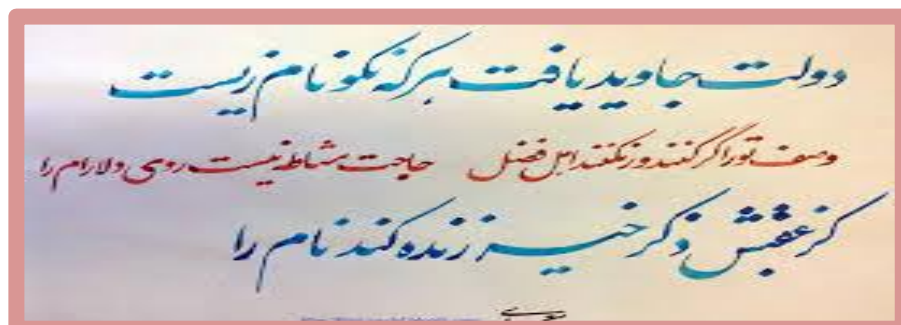 دولت جاوید یافت هر که نکو نام زیست
وصف تو را گر کنند ور نکنند اهل فضل حاجت مشاطه نیست روی دلارام را
کز عقبش ذکر خیر زنده کند نام را